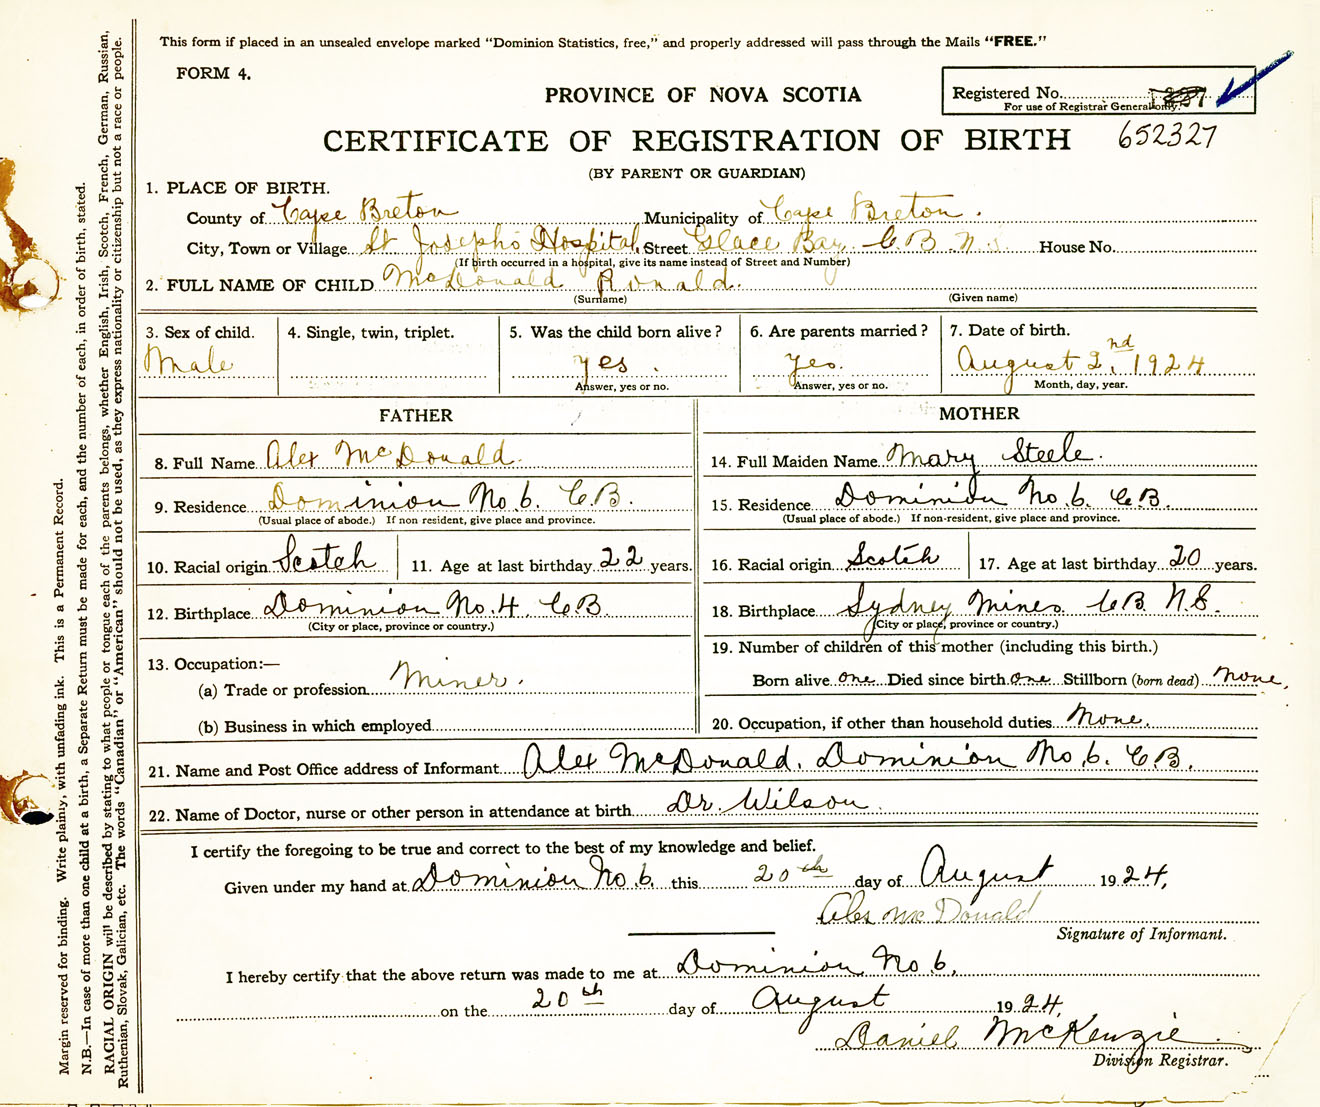 This form if placed in an unsealed envelope marked "Dominion Statistics, free," and properly addressed will pass through the Mails "FREE."
FORM 4.
PROVINCE OF NOVA SCOTIA
Registered No.
For use of Registrar General only.
CERTIFICATE OF REGISTRATION OF BIRTH 652327
(BY PARENT OR GUARDIAN)
1. PLACE OF BIRTH.
County of Cape Breton Municipality of Cape Breton.
City, Town or Village St Josephs Hospital, Street Glace Bay C.B. N.S. House No.
(If birth occurred in a hospital, give its name instead of Street and Number)
2. FULL NAME OF CHILD McDonald Ronald.
(Surname) (Given name)
3. Sex of child. 4. Single, twin, triplet. 5. Was the child born alive? 6. Are parents married? 7. Date of birth.
Male yes. yes. August 2nd, 1924
Answer, yes or no. Answer, yes or no. Month, day, year.
FATHER MOTHER
8. Full Name Alex McDonald. 14. Full Maiden Name Mary Steele.
9. Residence Dominion No. 6. C.B. 15. Residence Dominion No. 6. C.B.
(Usual place of abode.) If non resident, give place and province. (Usual place of abode.) If non-resident, give place and province.
10. Racial origin Scotch 11. Age at last birthday 22 years. 16. Racial origin Scotch 17. Age at last birthday 20 years.
12. Birthplace Dominion No. 4. C.B. 18. Birthplace Sydney Mines C.B. N.S.
(City or place, province or country.) (City or place, province or country.)
19. Number of children of this mother (including this birth.)
13. Occupation:—
(a) Trade or profession Miner. Born alive one Died since birth one Stillborn (born dead) None.
(b) Business in which employed 20. Occupation, if other than household duties None.
21. Name and Post Office address of Informant Alex McDonald. Dominion No. 6. C.B.
22. Name of Doctor, nurse or other person in attendance at birth Dr. Wilson.
I certify the foregoing to be true and correct to the best of my knowledge and belief.
Given under my hand at Dominion No. 6. this 20th day of August 1924.
Alex McDonald
Signature of Informant.
I hereby certify that the above return was made to me at Dominion No. 6.
on the 20th day of August 1924
Daniel McKenzie
Division Registrar.
Margin reserved for binding. Write plainly, with unfading ink. This is a Permanent Record.
N.B.—In case of more than one child at a birth, a Separate Return must be made for each, and the number of each, in order of birth, stated.
RACIAL ORIGIN will be described by stating to what people or tongue each of the parents belongs, whether English, Irish, Scotch, French, German, Russian,
Ruthenian, Slovak, Galician, etc. The words "Canadian" or "American" should not be used, as they express nationality or citizenship but not a race or people.